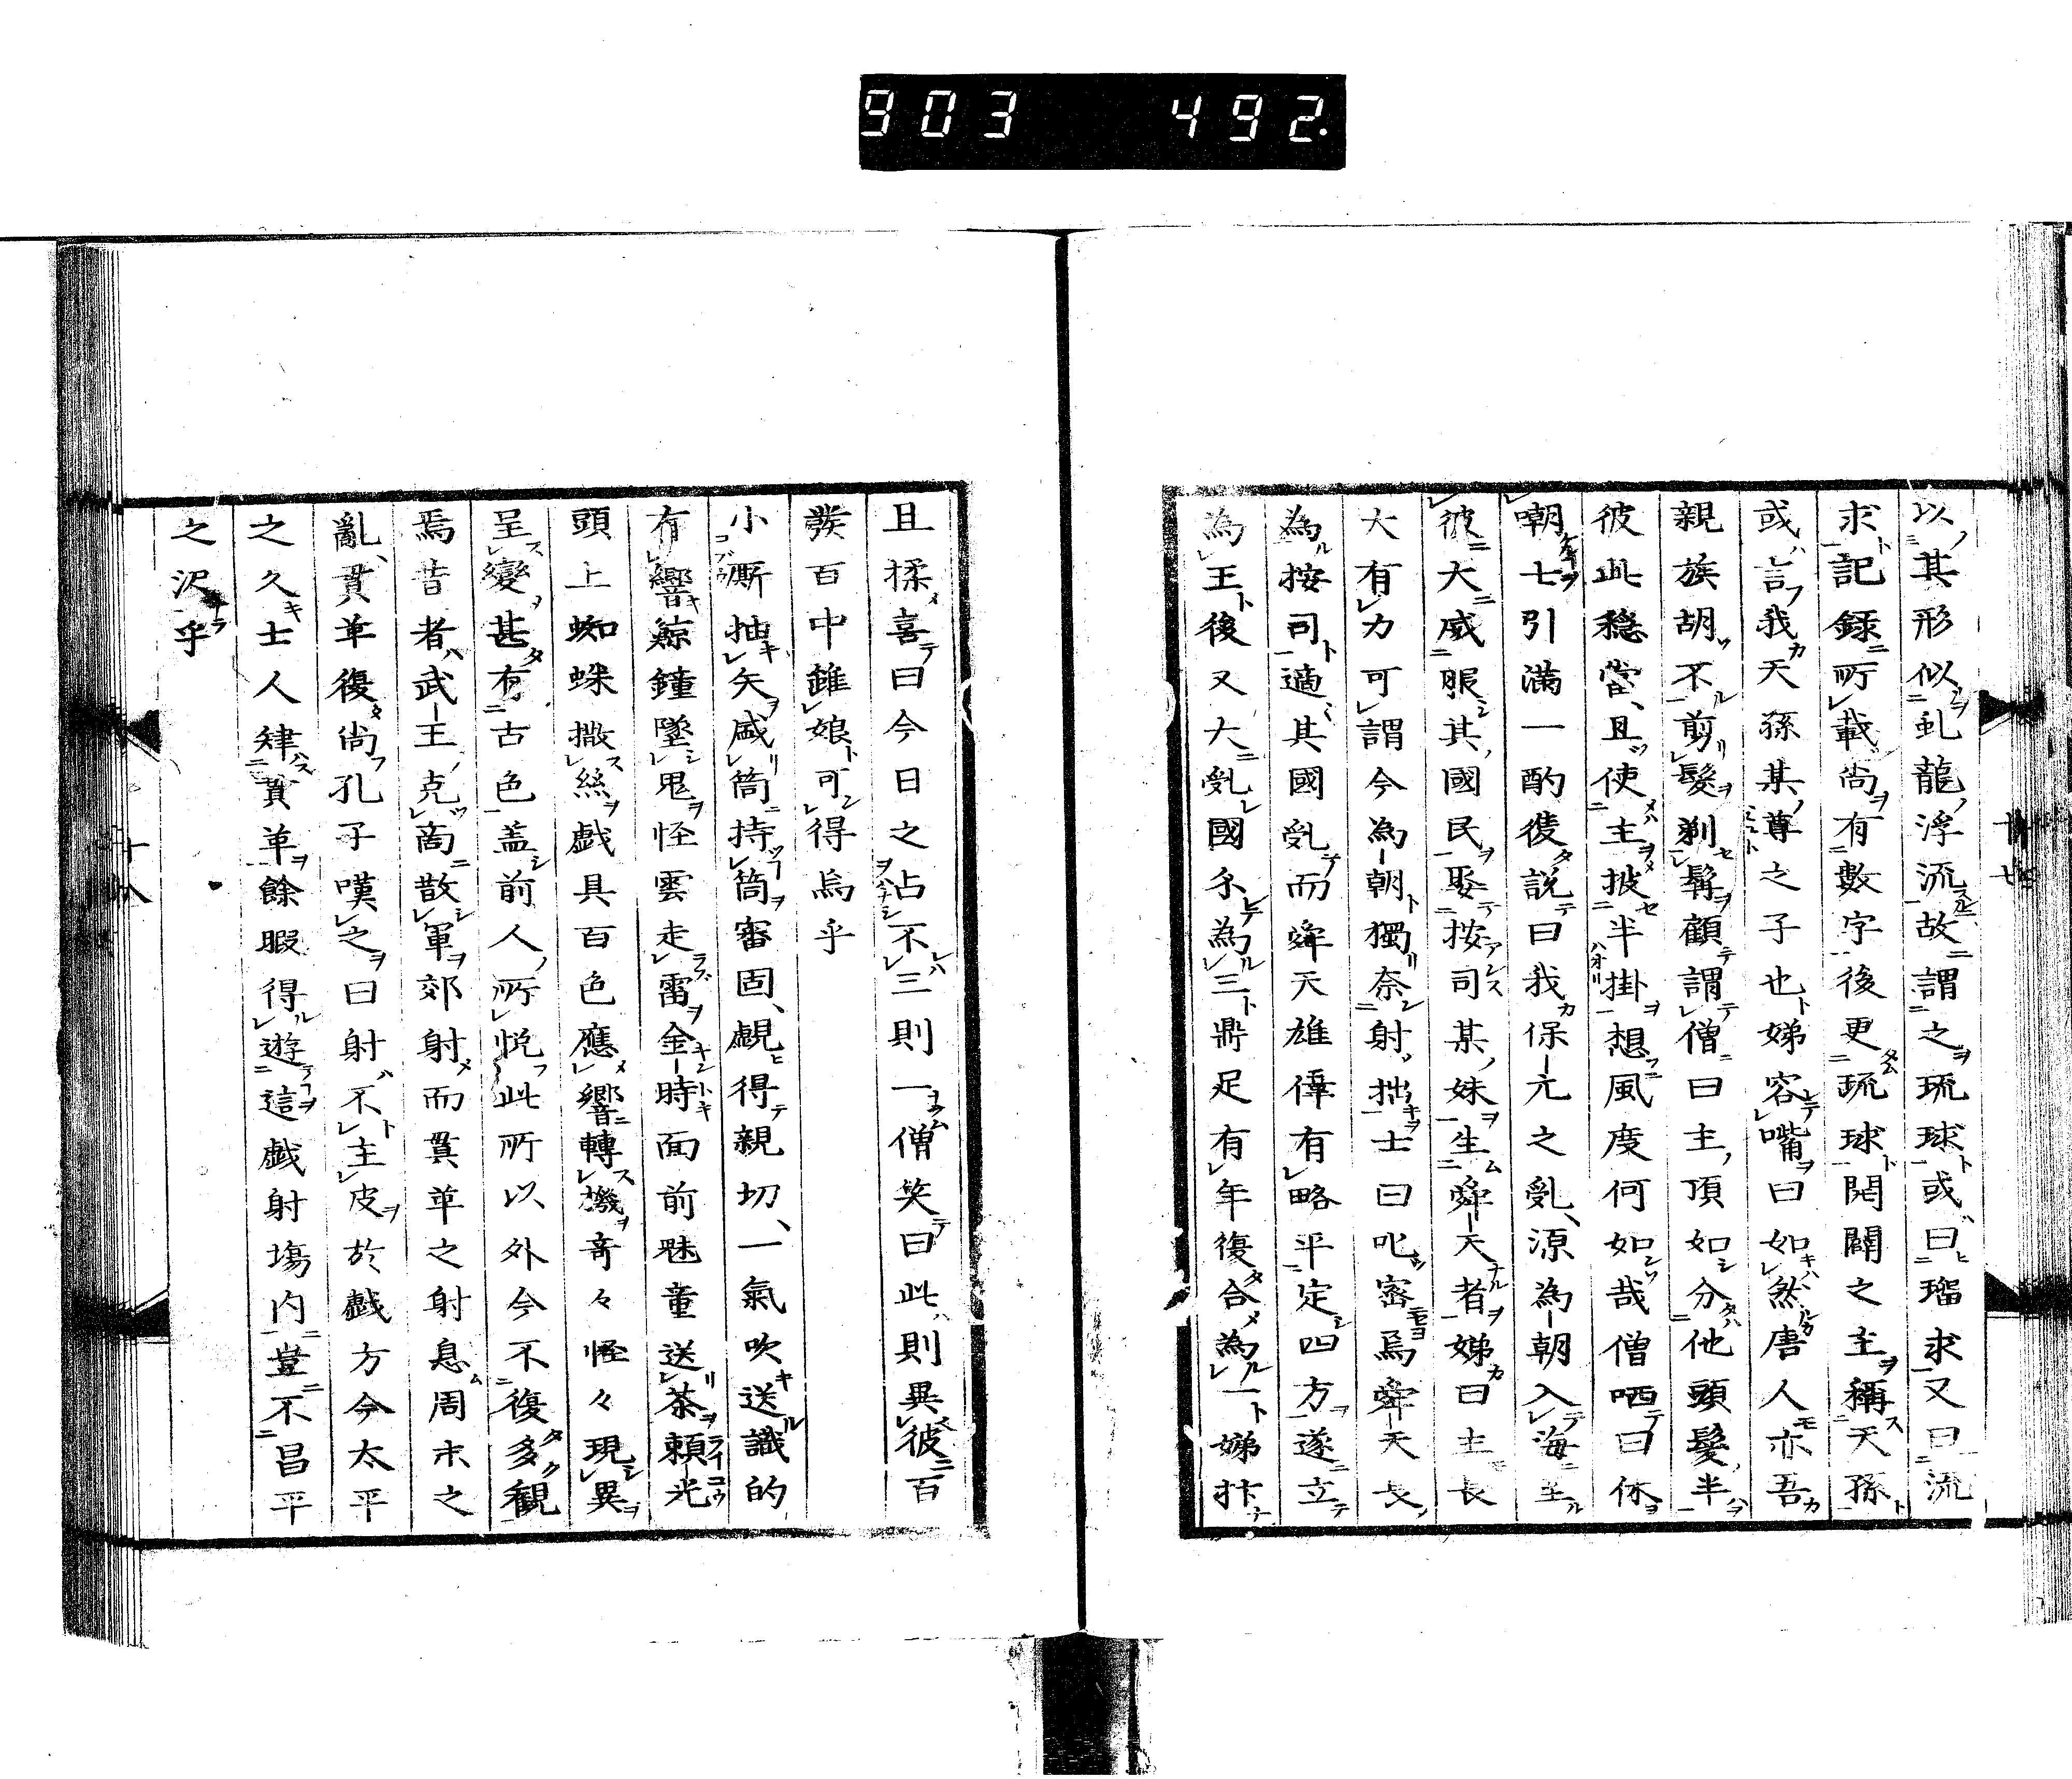 903 492.
以其形似虬龍浮流故謂之琉球或曰瑠求又曰流
求記録所載尚有數字後更琉球開闢之主稱天孫
或言我天孫某尊之子也娣容嘴曰如然唐人亦吾
親族胡不剪髮剃髯顧謂僧曰主頂如分他頭髮半
彼此穏當且使主披半掛想風度何如哉僧哂曰休
嘲士引満一酌復説曰我保元之亂源為朝入海至
彼大威服其國民娶按司某妹生舜天者娣曰土長
大有力可謂今為朝獨奈射拙士曰叱密焉舜天長
為按司適其國亂而舜天雄偉有略平定四方遂立
為王後又大亂國分為三鼎足有年復合為一娣抃
且揉喜曰今日之占不三則一僧笑曰此則異彼百
發百中雖娘可得烏乎
小厮抽矢盛筒持筒審固覷得親切一氣吹送識的
有響鯨鐘墜鬼怪雲走雷金時面前魅童送茶頼光
頭上蜘蛛撒絲戯具百色應響轉機奇々怪々現異
呈變甚有古色盖前人所悦此所以外今不復多観
焉昔者武王克商散軍郊射而貫革之射息周末之
亂貫革復尚孔子嘆之曰射不主皮於戯方今太平
之久士人肄貫革餘暇得遊這戯射塲内豈不昌平
之沢乎
十八